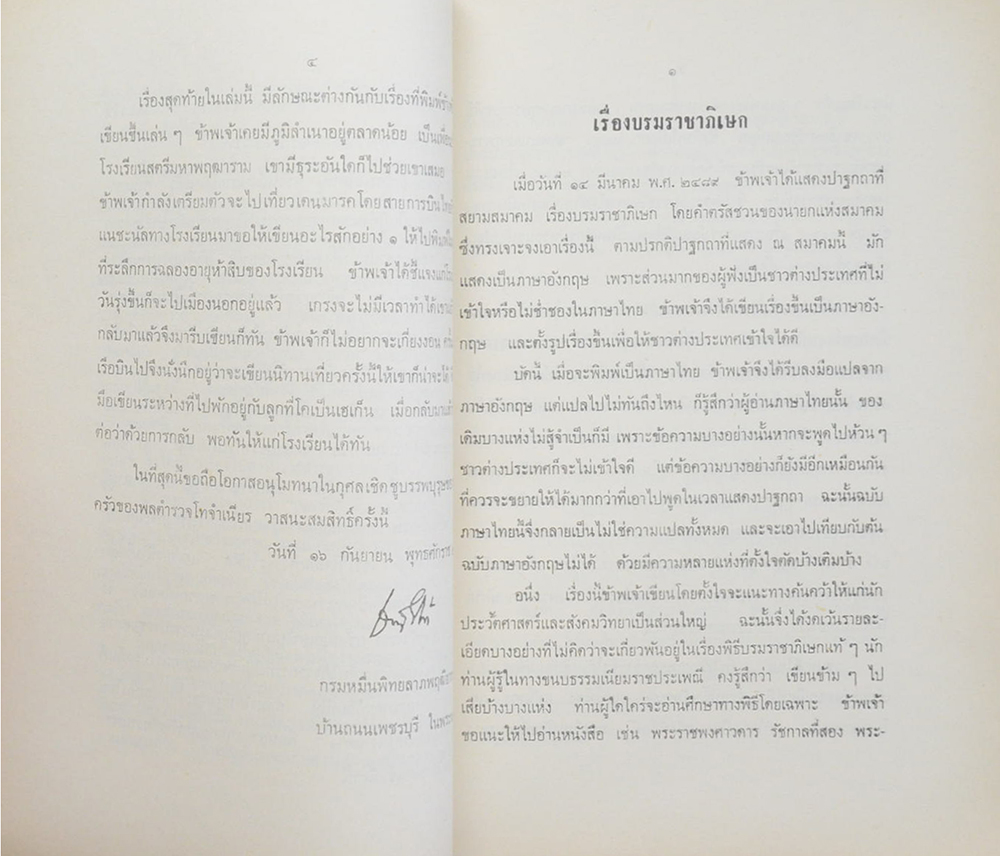 ๔
เรื่องสุดท้ายในเล่มนี้ มีลักษณะต่างกันกับเรื่องที่พิมพ์
เขียนขึ้นเล่น ๆ ข้าพเจ้าเคยมีภูมิลำเนาอยู่ตลาดน้อย เป็นเพื่อน
โรงเรียนสตรีมหาพฤฒาราม เขามีธุระอันใดก็ไปช่วยเขาเสมอ
ข้าพเจ้ากำลังเตรียมตัวจะไปเที่ยวเดนมารคโดยสายการบิน
แนชะนัลทางโรงเรียนมาขอให้เขียนอะไรสักอย่าง ๑ ให้ไปพิมพ์
ที่ระลึกการฉลองอายุห้าสิบของโรงเรียน ข้าพเจ้าได้ชี้แจง
วันรุ่งขึ้นก็จะไปเมืองนอกอยู่แล้ว เกรงจะไม่มีเวลาทำได้
กลับมาแล้วจึงมารีบเขียนก็ทัน ข้าพเจ้าก็ไม่อยากจะเกี่ยงงอน
เรือบินไปจึงนั่งนึกอยู่ว่าจะเขียนนิทานเที่ยวครั้งนี้ให้เขาก็น่าจะได้
มือเขียนระหว่างที่ไปพักอยู่กับลูกที่โคเปนเฮเก็น เมื่อกลับมา
ต่อว่าด้วยการกลับ พอทันให้แก่โรงเรียนได้ทัน
ในที่สุดนี้ขอถือโอกาสอนุโมทนาในกุศลเชิดชูบรรพบุรุษ
ครัวของพลตำรวจโทจำเนียร วาสนะสมสิทธิ์ครั้งนี้
วันที่ ๑๖ กันยายน พุทธศักราช
กรมหมื่นพิทยลาภพฤฒิ
บ้านถนนเพชรบุรี
๑
เรื่องบรมราชาภิเษก
เมื่อวันที่ ๑๔ มีนาคม พ.ศ. ๒๔๘๙ ข้าพเจ้าได้แสดงปาฐกถาที่
สยามสมาคม เรื่องบรมราชาภิเษก โดยคำตรัสชวนของนายกแห่งสมาคม
ซึ่งทรงเจาะจงเอาเรื่องนี้ ตามปรกติปาฐกถาที่แสดง ณ สมาคมนี้ มัก
แสดงเป็นภาษาอังกฤษ เพราะส่วนมากของผู้ฟังเป็นชาวต่างประเทศที่ไม่
เข้าใจหรือไม่ช่ำชองในภาษาไทย ข้าพเจ้าจึงได้เขียนเรื่องขึ้นเป็นภาษาอัง-
กฤษ และตั้งรูปเรื่องขึ้นเพื่อให้ชาวต่างประเทศเข้าใจได้ดี
บัดนี้ เมื่อจะพิมพ์เป็นภาษาไทย ข้าพเจ้าจึงได้รีบลงมือแปลจาก
ภาษาอังกฤษ แต่แปลไปไม่ทันถึงไหน ก็รู้สึกว่าผู้อ่านภาษาไทยนั้น ของ
เดิมบางแห่งไม่สู้จำเป็นก็มี เพราะข้อความบางอย่างนั้นหากจะพูดไปห้วน ๆ
ชาวต่างประเทศก็จะไม่เข้าใจดี แต่ข้อความบางอย่างก็ยังมีอีกเหมือนกัน
ที่ควรจะขยายให้ได้มากกว่าที่เอาไปพูดในเวลาแสดงปาฐกถา ฉะนั้นฉบับ
ภาษาไทยนี้จึงกลายเป็นไม่ใช่ความแปลทั้งหมด และจะเอาไปเทียบกับต้น
ฉบับภาษาอังกฤษไม่ได้ ด้วยมีความหลายแห่งที่ตั้งใจตัดบ้างเติมบ้าง
อนึ่ง เรื่องนี้ข้าพเจ้าเขียนโดยตั้งใจจะแนะทางค้นคว้าให้แก่นัก
ประวัติศาสตร์และสังคมวิทยาเป็นส่วนใหญ่ ฉะนั้นจึงได้งดเว้นรายละ-
เอียดบางอย่างที่ไม่คิดว่าจะเกี่ยวพันอยู่ในเรื่องพิธีบรมราชาภิเษกแท้ ๆ นัก
ท่านผู้รู้ในทางขนบธรรมเนียมราชประเพณี คงรู้สึกว่า เขียนข้าม ๆ ไป
เสียบ้างบางแห่ง ท่านผู้ใดใคร่จะอ่านศึกษาทางพิธีโดยเฉพาะ ข้าพเจ้า
ขอแนะให้ไปอ่านหนังสือ เช่น พระราชพงศาวดาร รัชกาลที่สอง พระ-